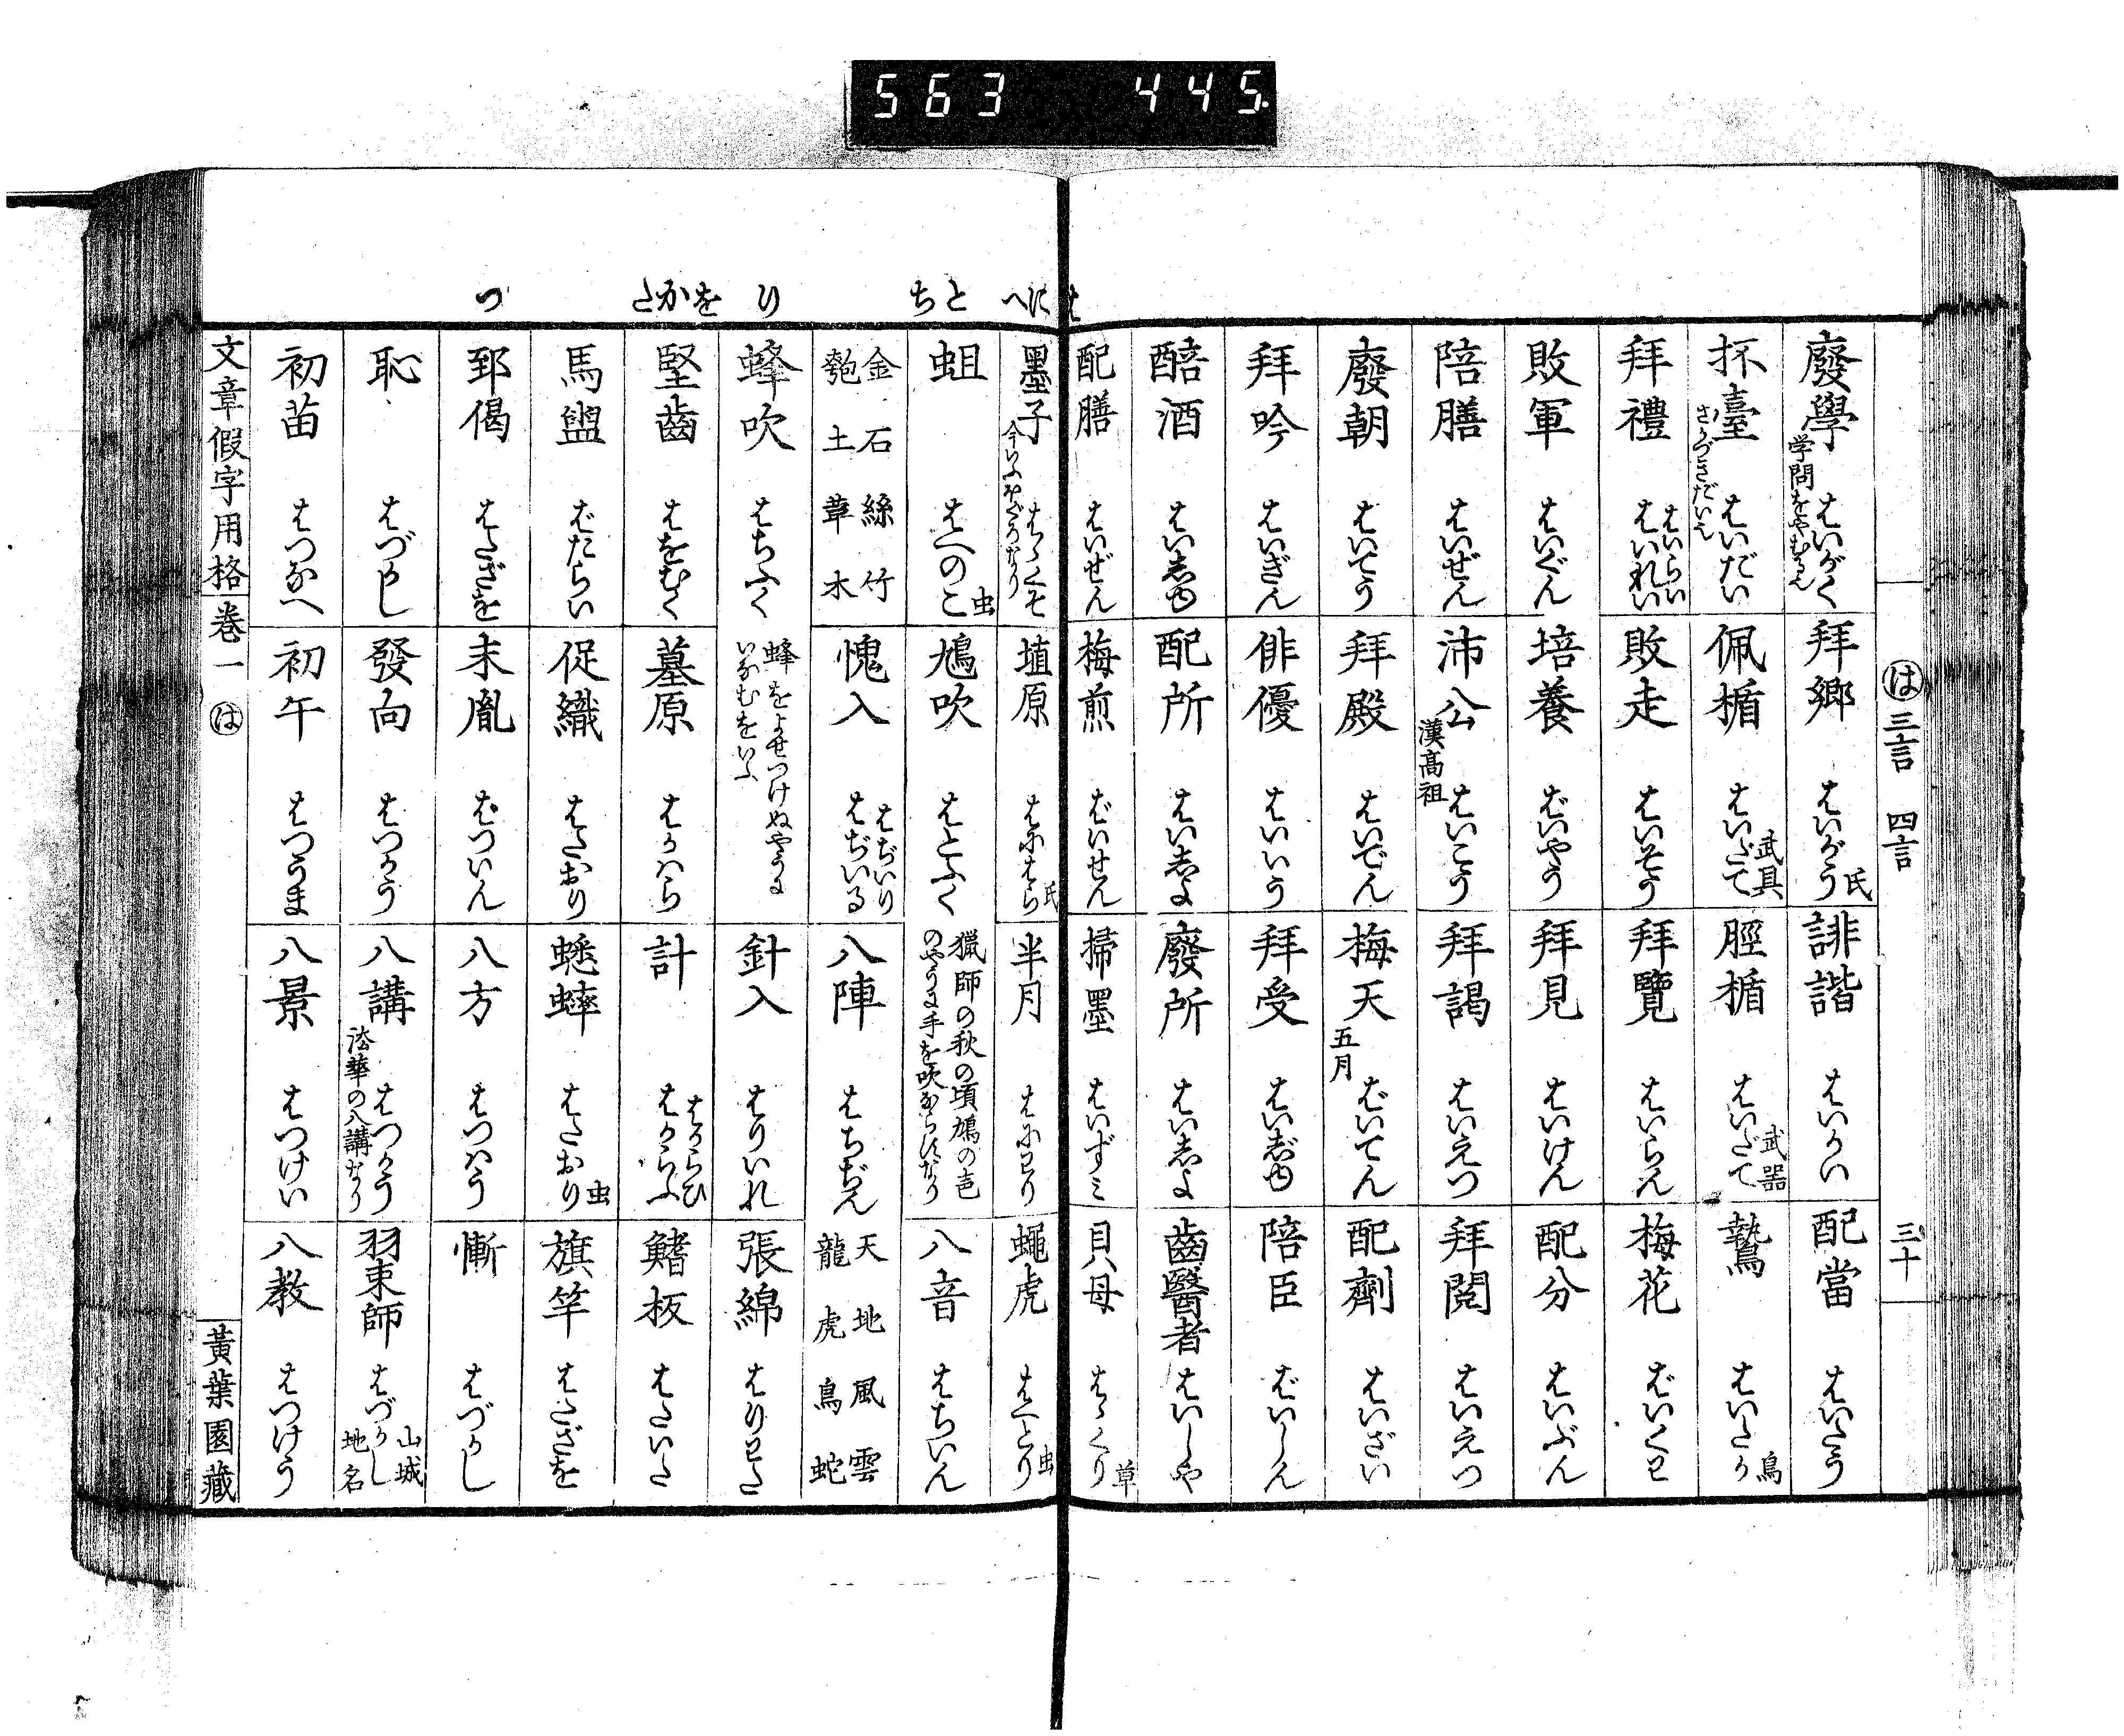 563 445
は 三言 四言 三十
廢學 はいがく 学問をやむるん
拜郷 はいがう 氏
誹諧 はいかい
配當 はいたう
抔臺 はいだい さかづきだいへ
佩楯 はいだて 武具
脛楯 はいだて 武器
鷙 はいたか 鳥
拜禮 はいらい はいれい
敗走 はいそう
拜覽 はいらん
梅花 ばいくわ
敗軍 はいぐん
培養 ばいやう
拜見 はいけん
配分 はいぶん
陪膳 はいぜん
沛公 はいこう 漢高祖
拜謁 はいえつ
拜閲 はいえつ
廢朝 はいてう
拜殿 はいでん
梅天 ばいてん 五月
配劑 はいざい
拜吟 はいぎん
俳優 はいいう
拜受 はいじゆ
陪臣 ばいしん
醅酒 はいしゆ
配所 はいしよ
廢所 はいしよ
齒醫者 はいしや
配膳 はいぜん
梅煎 ばいせん
掃墨 はいずミ
貝母 はゝくり 草
はにへ とち り をかた つ
墨子 はゝくそ
埴原 はにはら 氏
半月 はにわり
蠅虎 はへとり 虫
蛆 はへのこ 虫
鳩吹 はとふく 猟師の秋の頃鳩の声のやうに手を吹ならすなり
八音 はちいん
金石絲竹
匏土革木
愧入 はぢいり はぢいる
八陣 はちぢん
天地風雲
龍虎鳥蛇
蜂吹 はちふく 蜂をよせつけぬやうにいなむをいふ
針入 はりいれ
張綿 はりわた
堅齒 はをむく
墓原 はかハら
計 はからひ はからふ
鰭板 はたいた
馬盥 ばたらい
促織 はたおり
蟋蟀 はたおり 虫
旗竿 はたざを
郅偈 はたざを
末胤 ばついん
八方 はつハう
慚 はづかし
恥 はづかし
發向 はつかう
八講 はつかう 法華の八講なり
羽束師 はづかし 山城地名
初苗 はつなへ
初午 はつうま
八景 はつけい
八教 はつけう
文章假字用格 卷一 は 黃葉園藏